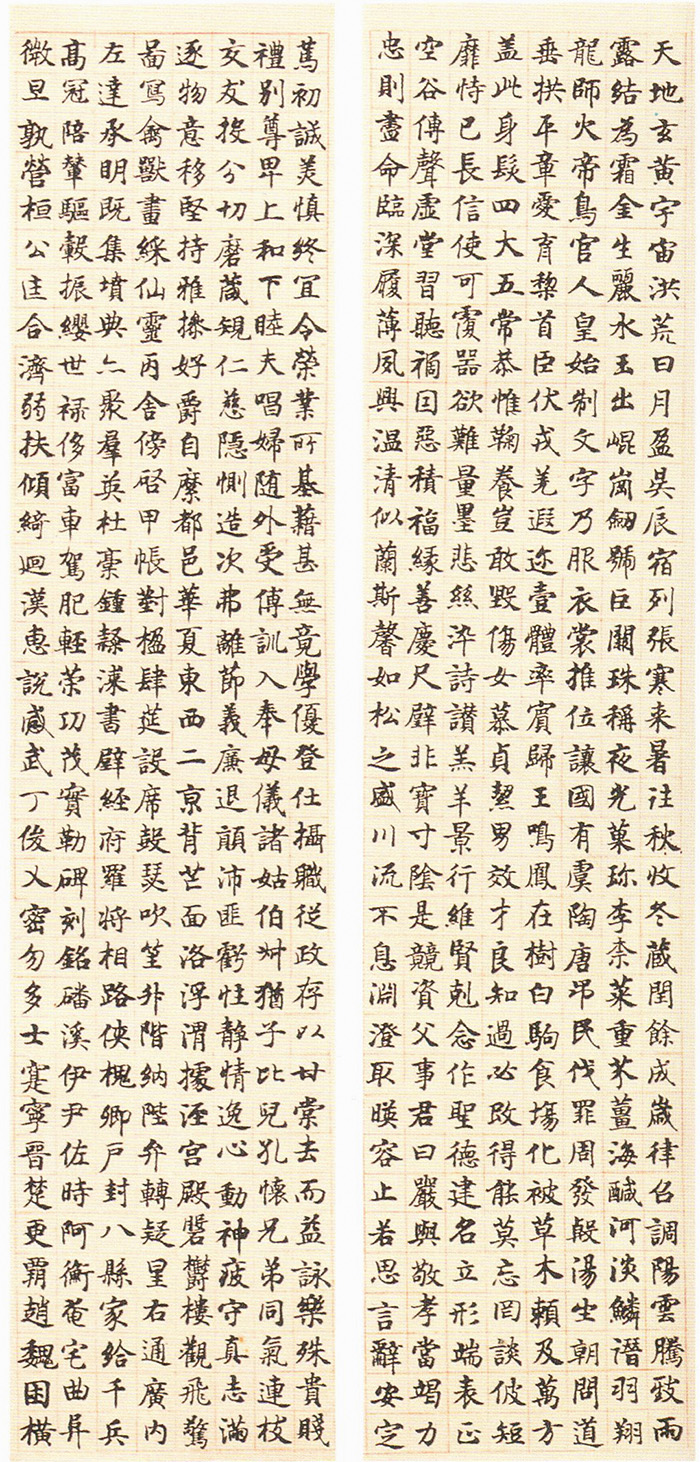 天地玄黃宇宙洪荒日月盈昃辰宿列張寒来暑往秋收冬藏閏餘成歲律召調陽雲騰致雨
露結為霜金生麗水玉出崐崗劒號巨闕珠稱夜光菓珎李柰菜重芥薑海醎河淡鱗潛羽翔
龍師火帝鳥官人皇始制文字乃服衣裳推位讓國有虞陶唐弔民伐罪周發殷湯坐朝問道
垂拱平章愛育黎首臣伏戎羌遐迩壹體率賓歸王鳴鳳在樹白駒食場化被草木賴及萬方
盖此身髮四大五常恭惟鞠養豈敢毀傷女慕貞絜男效才良知過必改得能莫忘罔談彼短
靡恃己長信使可覆器欲難量墨悲絲染詩讚羔羊景行維賢剋念作聖德建名立形端表正
空谷傳聲虛堂習聽禍因惡積福緣善慶尺璧非寶寸陰是競資父事君曰嚴與敬孝當竭力
忠則盡命臨深履薄夙興温清似蘭斯馨如松之盛川流不息淵澄取暎容止若思言辭安定
篤初誠美慎終宜令榮業所基藉甚無竟學優登仕攝職從政存以甘棠去而益詠樂殊貴賤
禮別尊卑上和下睦夫唱婦随外受傅訓入奉母儀諸姑伯叔猶子比兒孔懷兄弟同氣連枝
交友投分切磨箴規仁慈隱惻造次弗離節義廉退顛沛匪虧性静情逸心動神疲守真志滿
逐物意移堅持雅操好爵自縻都邑華夏東西二京背芒面洛浮渭據涇宮殿磐鬱樓觀飛驚
啚寫禽獸畫綵仙靈丙舍傍啓甲帳對楹肆筵設席鼓瑟吹笙升階納陛弁轉疑星右通廣内
左達承明既集墳典亦聚羣英杜稾鍾隸漆書壁經府羅將相路俠槐卿戶封八縣家給千兵
髙冠陪輦驅轂振纓世禄侈富車駕肥輕策功茂實勒碑刻銘磻溪伊尹佐時阿衡奄宅曲阜
微旦孰營桓公匡合濟弱扶傾綺迴漢惠說感武丁俊乂密勿多士寔寧晉楚更霸趙魏困橫